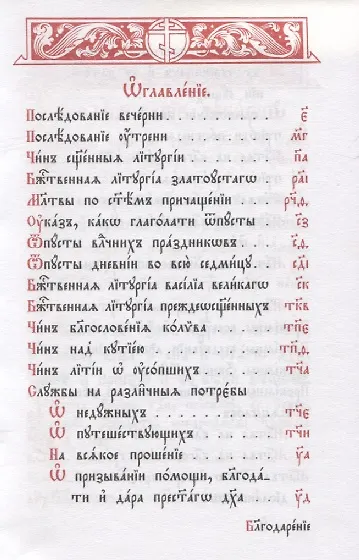 Ѡ҆главле́нїе.
Послѣ́дованїе вече́рни . . . . . . . . . . є҃
Послѣ́дованїе ᲂу҆́трени . . . . . . . . м҃г
Чи́нъ сщ҃е́нныѧ лїтꙋргі́и . . . . . . . п҃а
Бж҃е́ственнаѧ лїтꙋргі́а златоꙋ́стагѡ . . р҃аі
Мл҃твы по ст҃ѣ́мъ причаще́нїи . . . .
Оу҆ка́зъ, ка́кѡ глаго́лати ѿпꙋсты . .
Ѿпꙋсты влⷣчнихъ пра́здникѡвъ . .
Ѿпꙋсты дне́внїи во всю̀ седми́цꙋ . .
Бж҃е́ственнаѧ лїтꙋргі́а васі́лїа вели́кагѡ с҃к
Бж҃е́ственнаѧ лїтꙋргі́а преждеѡсщ҃е́нныхъ т҃кв
Чи́нъ блгⷭ҇ове́нїѧ ко́лѵва . . . . . . . т҃пє
Чи́нъ над̾ кꙋтїе́ю . . . . . . . . . .
Чи́нъ лїтїѝ ѡ҆ ᲂу҆со́пшихъ . . . . . т҃ча
Слꙋ́жбы на разли̑чныѧ потрє́бы
Ѡ҆ недꙋ́жныхъ . . . . . . . . . т҃чє
Ѡ҆ пꙋтеше́ствꙋющихъ . . . . . . т҃чи
На всѧ́кое проше́нїе . . . . . . . у҃а
Ѡ҆ призыва́нїи по́мощи, блгⷣа-
ти и҆ да́ра прест҃а́гѡ дх҃а . . . . у҃д
Блгⷣаре́нїе